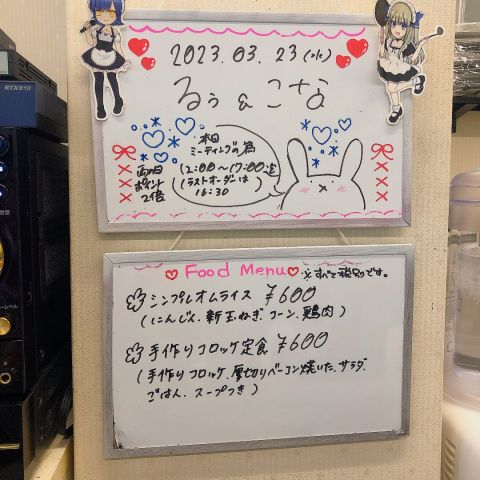 RTX610
2023.03.23(水)
るぅ&こなつ
本日
ミーティングの為
12:00〜17:00迄
(ラストオーダーは
16:30
雨の日
ポイント
2倍
Food Menu
※すべて税別です。
シンプルオムライス ¥600
(にんじん、新玉ねぎ、コーン、鶏肉)
手作りコロッケ定食 ¥600
(手作りコロッケ、厚切りベーコン焼いた、サラダ、
ごはん、スープつき)